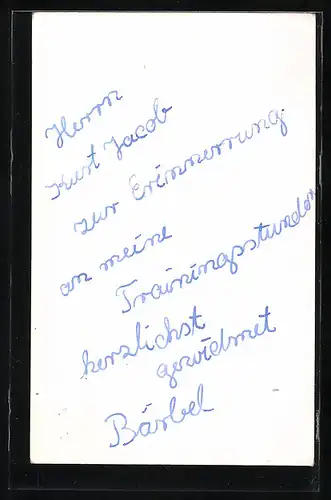 Herrn
Kurt Jacob
zur Erinnerung
an meine
Trainingsstunden
herzlichst
gewidmet
Bärbel